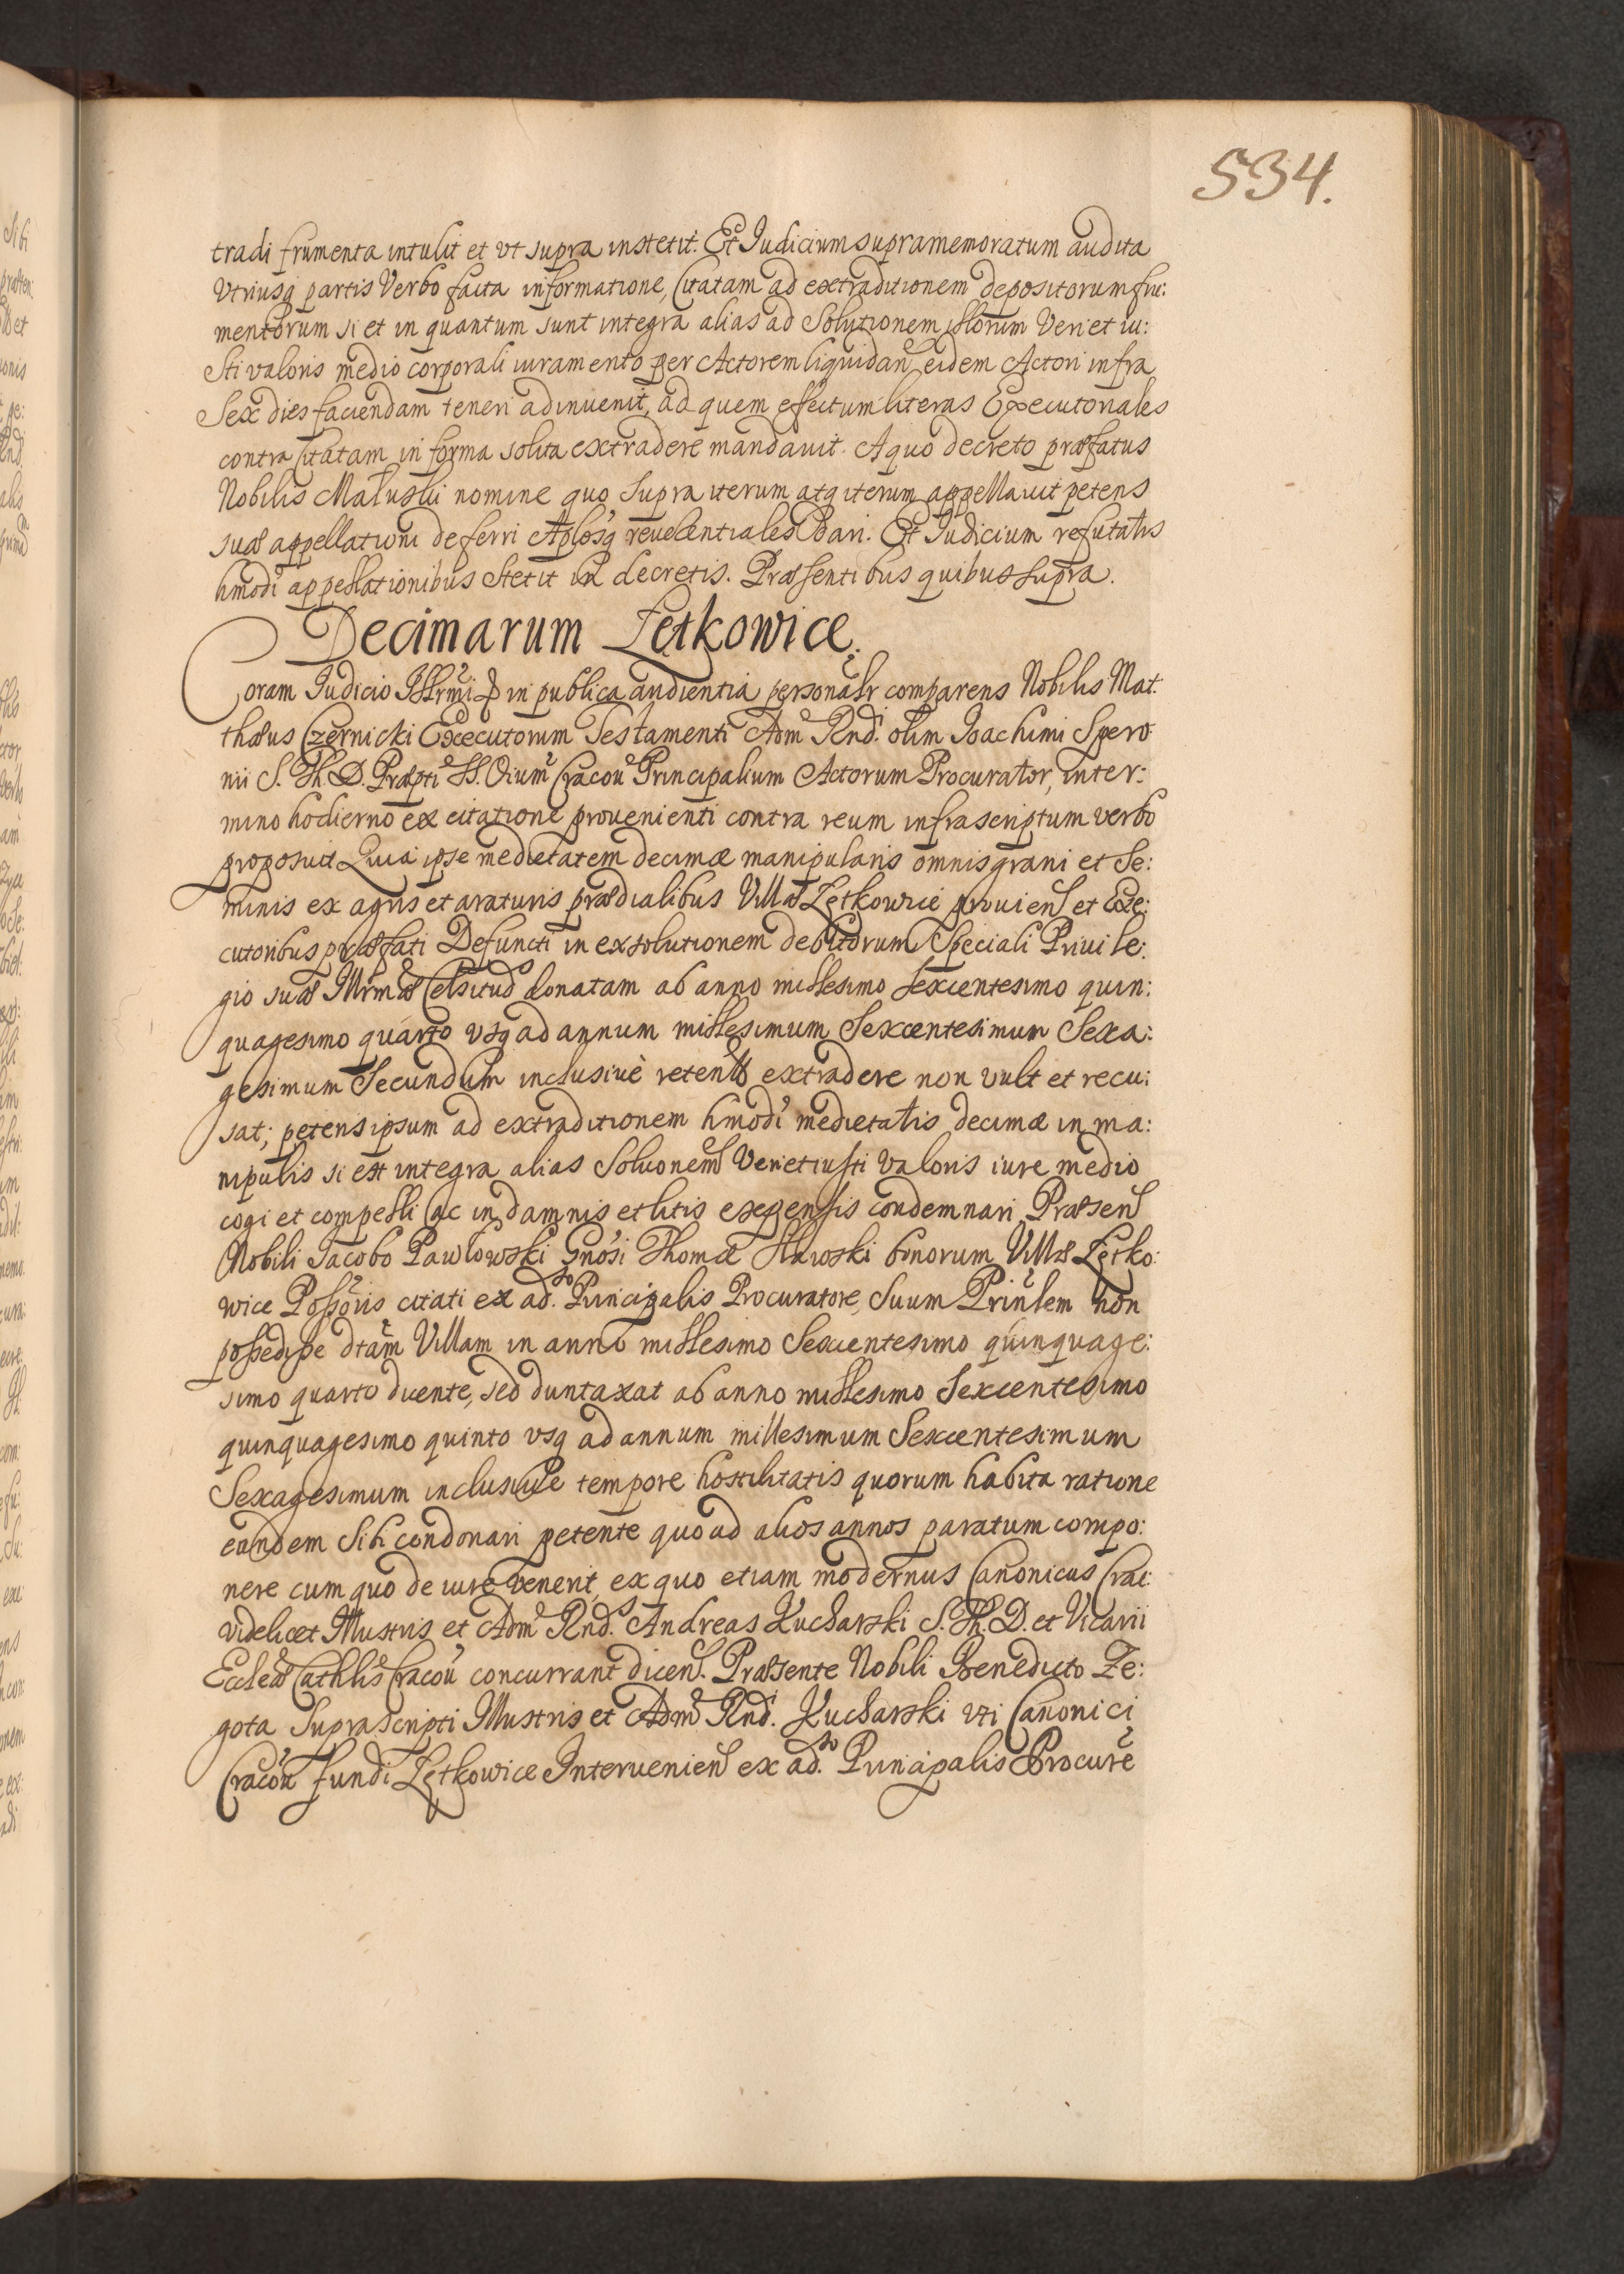 534.
tradi frumenta intulit et vt supra institit. Et Iudicium supramemoratum audita
vtriusq partis Verbo facta informatione, Citatam ad extraditionem depositorum fru:
mentorum si et in quantum sunt integra alias ad Solutionem illorum Veri et iu:
sti valoris medio corporali iuramento per Actorem liquidan eidem Actori infra
Sex dies faciendam teneri adinuenit, ad quem effectum literas Executoriales
contra Citatam in forma solita extradere mandauit. A quo decreto præfatus
Nobilis Małuski nomine quo supra iterum atq iterum appellauit petens
suæ appellationi deferri Aplosq reuerentiales Dari. Et Iudicium refutatis
hmodi appellationibus stetit in decretis. Præsentibus quibus supra.
Decimarum Zętkowice.
Coram Iudicio Illrmi D in publica audientia personalr comparens Nobilis Mat:
thæus Czernicki Executorum Testamenti Adm Rnd. olim Ioachimi Spero
nii S. Th. D. Præpti SS. Oium Cracou Principalium Actorum Procurator, in ter:
mino hodierno ex citatione prouenienti contra reum infrascriptum verbo
proposuit Quia ipse medietatem decimæ manipularis omnis grani et Se:
minis ex agris et araturis prædialibus Villæ Zętkowice prouien et Exe:
cutoribus præfati Defuncti in exsolutionem debitorum Speciali Priuile:
gio suæ Illrmæ Celsitud donatam ab anno millesimo sexcentesimo quin:
quagesimo quarto vsq ad annum millesimum Sexcentesimum Sexa:
gesimum Secundum inclusiuè reten extradere non vult et recu:
sat; petens ipsum ad extraditionem hmodi medietatis decimæ in ma:
nipulis si est integra alias Soluonem Veri et iusti valoris iure medio
cogi et compelli ac in damnis et litis expensis condemnari Præsen
Nobili Iacobo Pawłowski Gnosi Thomæ bonorum Villæ Zętko:
wice Possoris citati ex ad.so Principalis Procuratore, Suum Prinlem non
possedisse dtam Villam in anno millesimo Sexcentesimo quinquage:
simo quarto dicente, sed duntaxat ab anno millesimo Sexcentesimo
quinquagesimo quinto vsq ad annum millesimum Sexcentesimum
Sexagesimum inclusiue tempore hostilitatis quorum habita ratione
eandem Sibi condonari petente quo ad alios annos paratum compo:
nere cum quo de iure venerit, ex quo etiam modernus Canonicus Crac:
videlicet Illustris et Adm Rnd.s Andreas Kucharski S. Th. D. et Vicarii
Ecclæ Cathlis Cracou concurrant dicen. Præsente Nobili Benedicto Ze:
gota Suprascripti Illustris et Adm Rnd. Kucharski vti Canonici
Cracou fundi Zętkowice Interuenien ex ad.so Principalis Procure